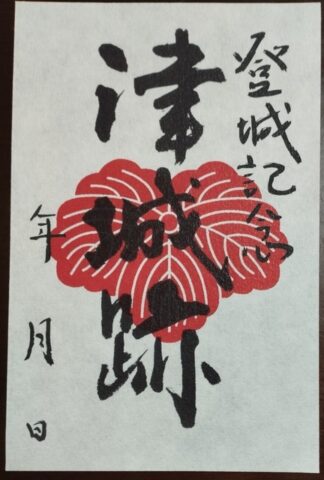 登城記念
津城跡
年 月 日